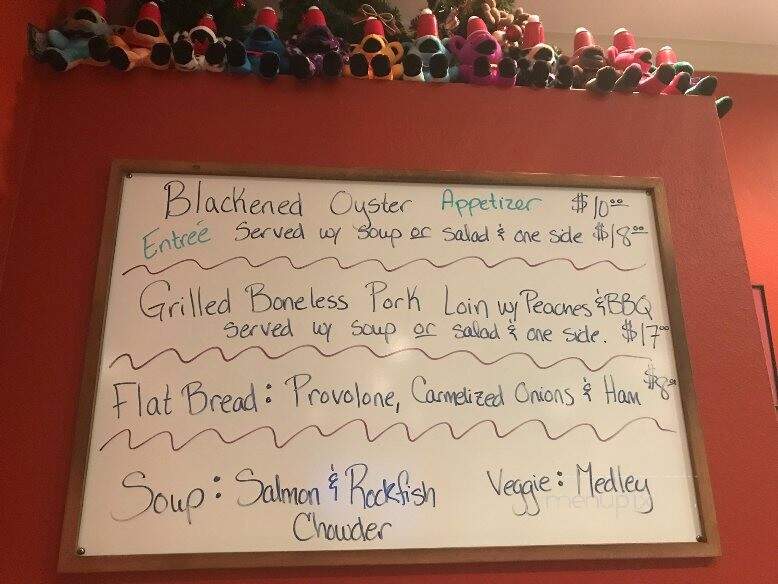 Blackened Oyster Appetizer $10.00
Entreé Served w/ Soup or Salad & one side $18.00
Grilled Boneless Pork Loin w/ Peaches & BBQ
Served w/ Soup or Salad & one side. $17.00
Flat Bread: Provolone, Carmelized Onions & Ham $8.00
Soup: Salmon & Rockfish Chowder
Veggie: Medley
menupix